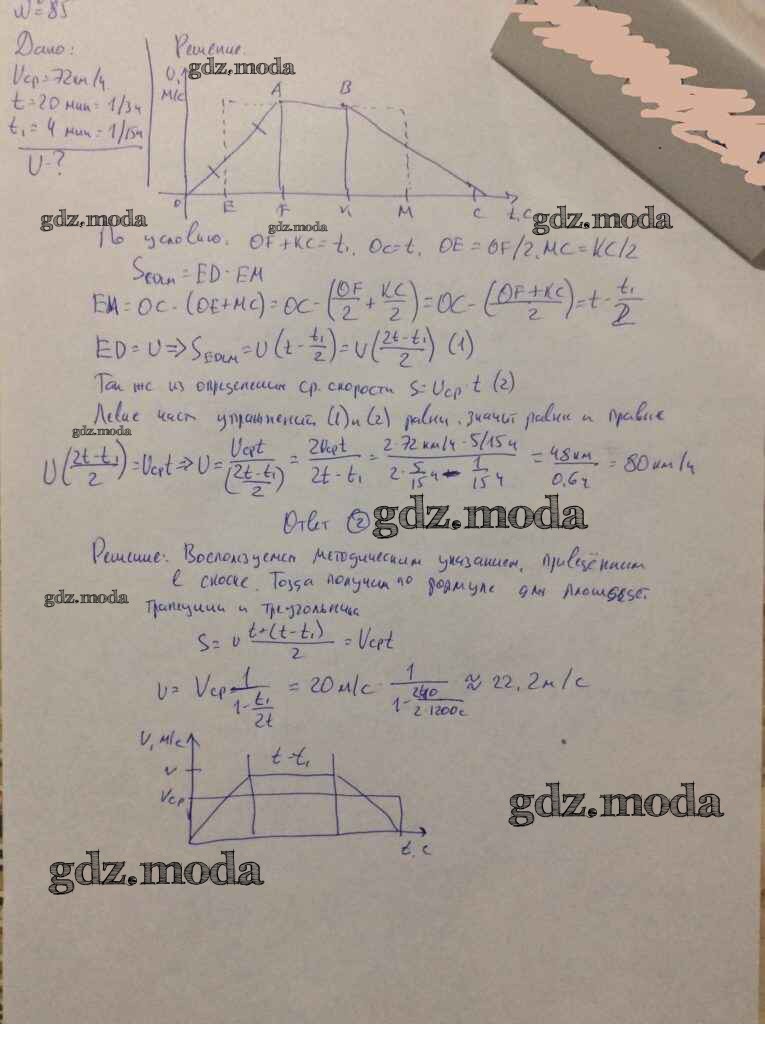 N=85
Дано:
Vср=72км/ч
t=20 мин=1/3ч
t₁=4 мин=1/15ч
U-?
Решение.
gdz.moda
U,
м/с
A
B
O
E
F
K
M
C
t, c
gdz.moda
gdz.moda
gdz.moda
По условию: OF+KC=t₁, OC=t, OE=OF/2, MC=KC/2
S = ED·EM
EM=OC-(OE+MC)=OC-(OF/2+KC/2)=OC-(OF+KC/2)=t-t₁/2
ED=U=>S =U(t-t₁/2)=U(2t-t₁/2) (1)
Так же из определения ср. скорости S=Uср·t (2)
Левые част (1) и (2) равны, значит равны и правые
gdz.moda
U(2t-t₁/2)=Uсрt=>U=Uсрt/(2t-t₁/2)=2Uсрt/2t-t₁=2·72км/ч·5/15ч/2·5/15ч-1/15ч=48км/0,6ч=80км/ч
Ответ 2
gdz.moda
Решение: Воспользуемся методическим указанием, приведённым
в сноске. Тогда получим по формуле для площадей
gdz.moda
трапеции и треугольника
S= υ t+(t-t₁)/2 = Vсрt
υ= Vср 1/1-t₁/2t = 20м/с· 1/1-240/2·1200с ≈ 22,2м/с
U, м/с
υ
Vср
t-t₁
t, c
gdz.moda
gdz.moda